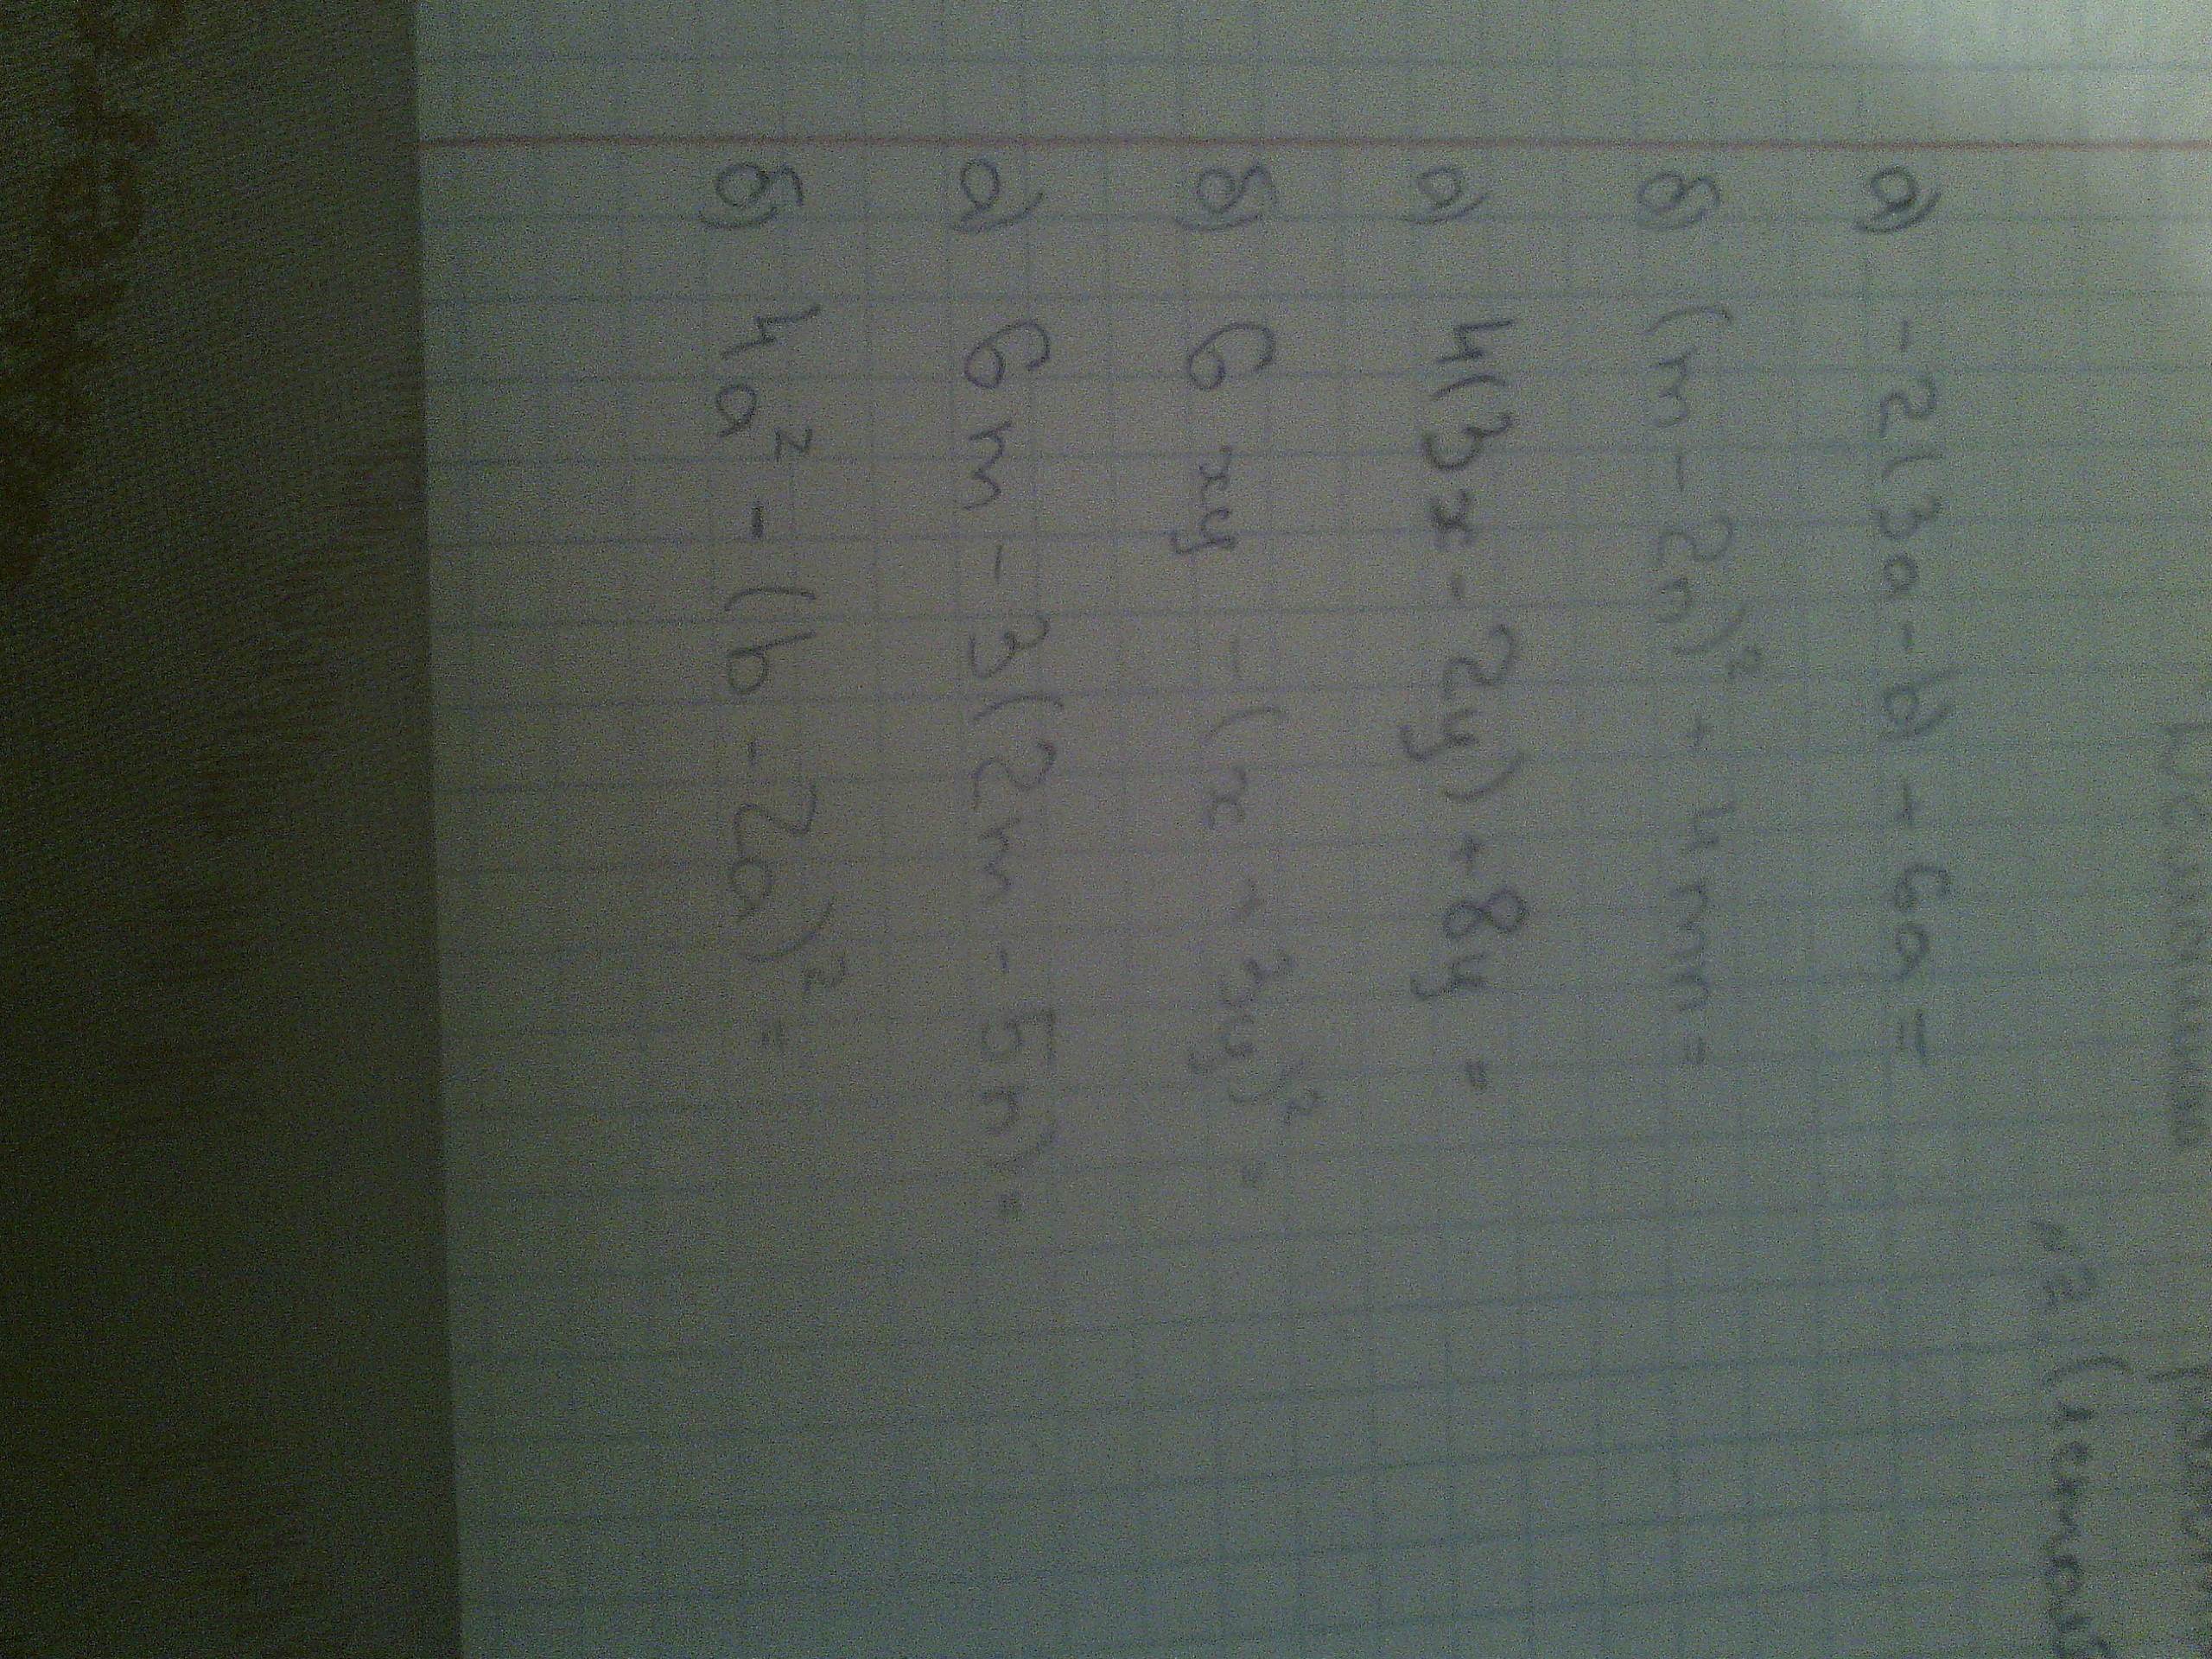 №2 (
а) -2(3a-b)-6a=
б) (m-2n)²+4mn=
а) 4(3x-2y)+8y=
б) 6xy - (x 3y)²=
а) 6m-3(2m-5n)=
б) 4a²-(b-2a)²=